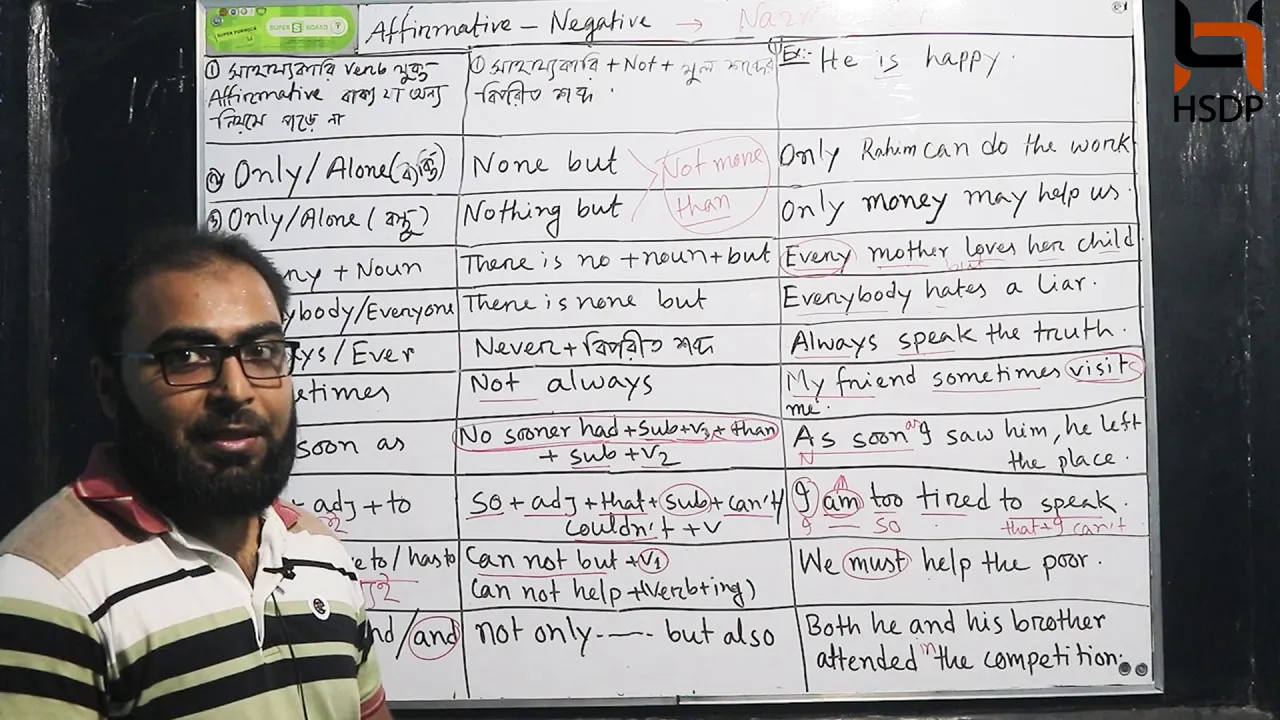 SUPER FORMULA
SUPER S BOARD
Affirmative – Negative →
HSDP
① সাহায্যকারি verb যুক্ত
Affirmative বাক্য যা অন্য
নিয়মে পড়ে না
① সাহায্যকারি + Not + মূল শব্দের
বিপরীত শব্দ
Ex:- He is happy.
② Only/Alone (ব্যক্তি)
None but
Not more
than
Only Rahim can do the work
③ Only/Alone (বস্তু)
Nothing but
Only money may help us.
ny + Noun
There is no + noun + but
Every mother loves her child
but
ybody/Everyone
There is none but
Everybody hates a liar.
ys/Ever
Never + বিপরীত শব্দ
Always speak the truth.
etimes
Not always
My friend sometimes visit
me.
soon as
No sooner had + sub + v3 + than
+ sub + v2
As soon as I saw him, he left
N
the place.
adj + to
So + adj + that + sub + can't/
couldn't + v
I am too tired to speak.
I so that + I can't
e to/has to
Can not but + v1
Can not help + (verb + ing)
We must help the poor.
nd/and
not only ---- but also
Both he and his brother
attended in the competition.